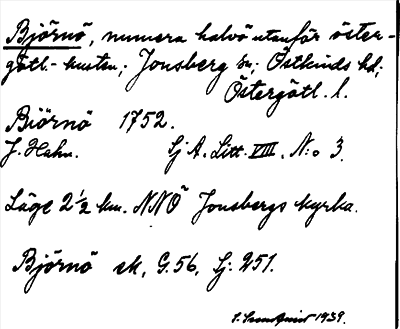 Björnö, numera halvö utanför öster-
götl.-kusten; Jonsberg sn; Östkinds hd;
Östergötl. l.
Biörnö 1752.
J. Hahn. Sj A. Litt. VIII, N:o 3.
Läge 2 1/2 km. NNÖ Jonsbergs kyrka.
Björnö sk, G. 56, Sj. 251.
1939.